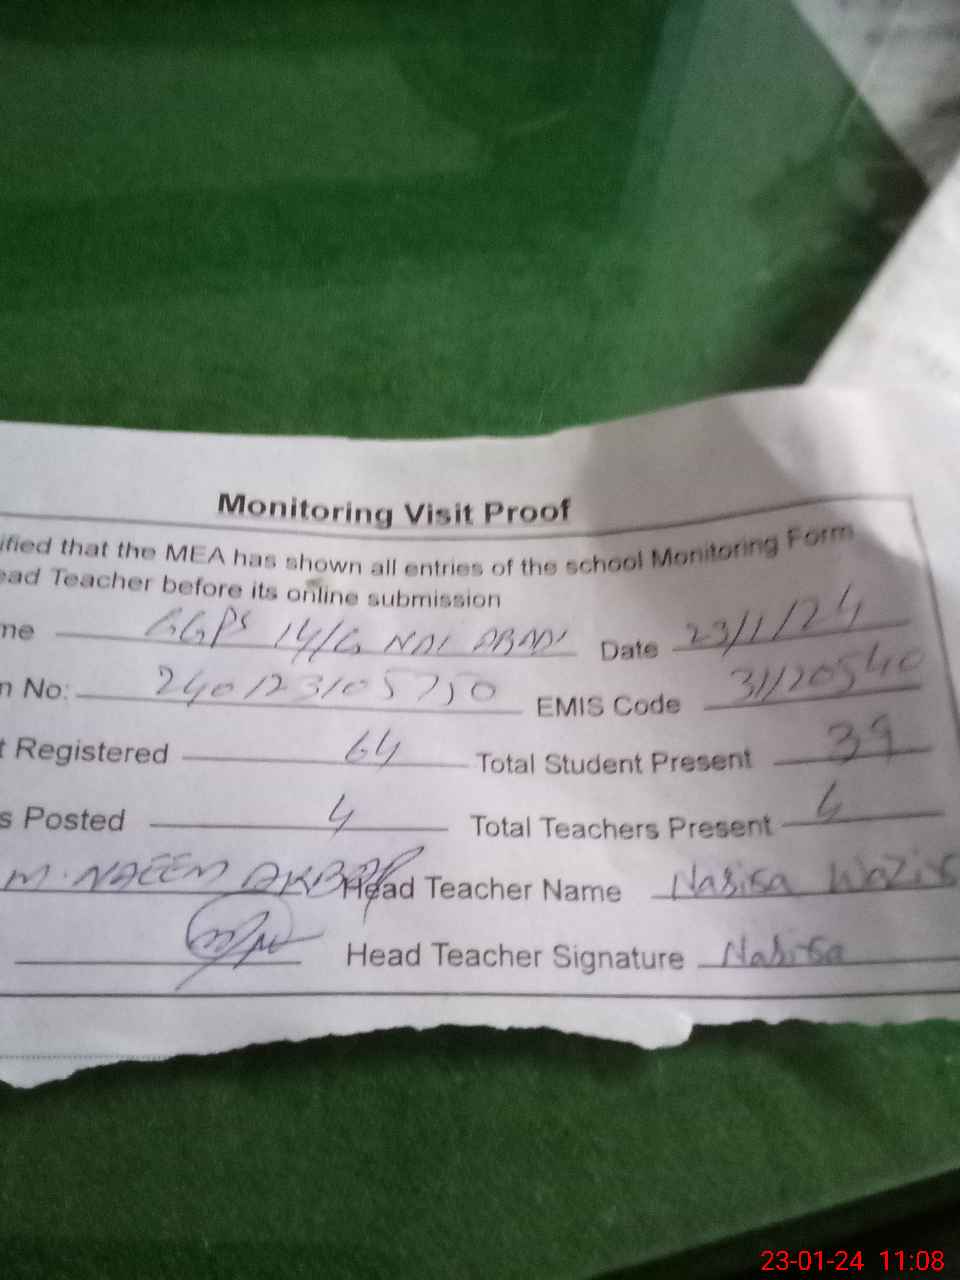 Monitoring Visit Proof
ified that the MEA has shown all entries of the school Monitoring Form
ead Teacher before its online submission
me GGPS 14/G NAI ABADI Date 23/1/24
n No: 240123105750 EMIS Code 31120540
t Registered 64 Total Student Present 39
s Posted 4 Total Teachers Present 4
M. NAEEM AKBAR Head Teacher Name
Head Teacher Signature
23-01-24 11:08